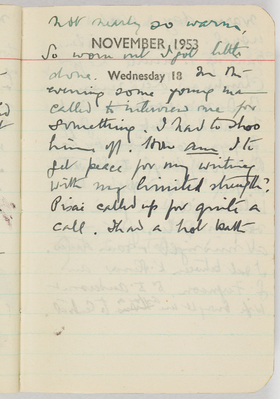 not nearly so warm,
So worn out I got little
NOVEMBER 1953
done. Wednesday 18 In the
evening some young man
called to interview me for
something. I had to shoo
him off. How am I to
get peace for my writing
with my limited strength?
called up for quite a
call. I had a hot bath